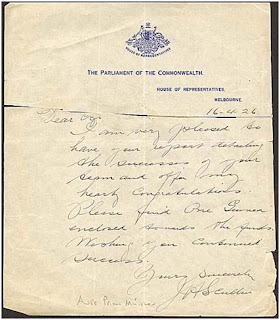 HOUSE OF REPRESENTATIVES
THE PARLIAMENT OF THE COMMONWEALTH.
HOUSE OF REPRESENTATIVES,
MELBOURNE
16-4-26
Dear
I am very pleased to
have your report detailing
the successes of your
team and offer my
hearty Congratulations
Please find One Guinea
enclosed towards the funds.
Wishing you Continued
Success.
Yours Sincerely
J H Scullin
Prime Minister